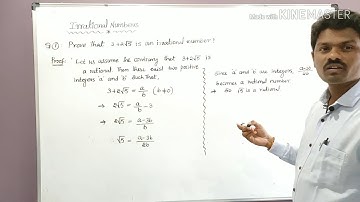 Made with KINEMASTER
Irrational Numbers
Q ① Prove that 3+2√5 is an irrational number?
Proof: Let us assume the contrary that 3+2√5 is
a rational. Then there exist two positive
integers 'a' and 'b' such that,
3+2√5 = a/b (b≠0)
⇒ 2√5 = a/b - 3
⇒ 2√5 = a-3b/b
∴ √5 = a-3b/2b
Since 'a' and 'b' are integers,
becomes a rational number
⇒ So √5 is a rational